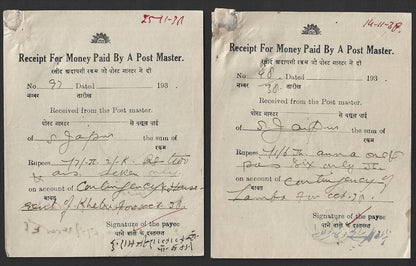 25-11-38
Receipt For Money Paid By A Post Master.
रसीद अदायगी रकम जो पोस्ट मास्टर ने दी
No 97 Dated 193 .
नम्बर तारीख
Received from the Post master.
पोस्ट मास्टर से वसूल पाई
of S. Jaipur the sum of
रकम
Rupees
only.
on account of Contingency & House
बाबत
rent of
Signature of the payee
पाने वाले के दस्तखत
14-11-38
Receipt For Money Paid By A Post Master.
रसीद अदायगी रकम जो पोस्ट मास्टर ने दी
No 98 Dated 193 .
नम्बर 30 तारीख
Received from the Post master.
पोस्ट मास्टर से वसूल पाई
of S. Jaipur the sum of
रकम
Rupees annas
pies six only
on account of Contingency of
बाबत
Signature of the payee
पाने वाले के दस्तखत